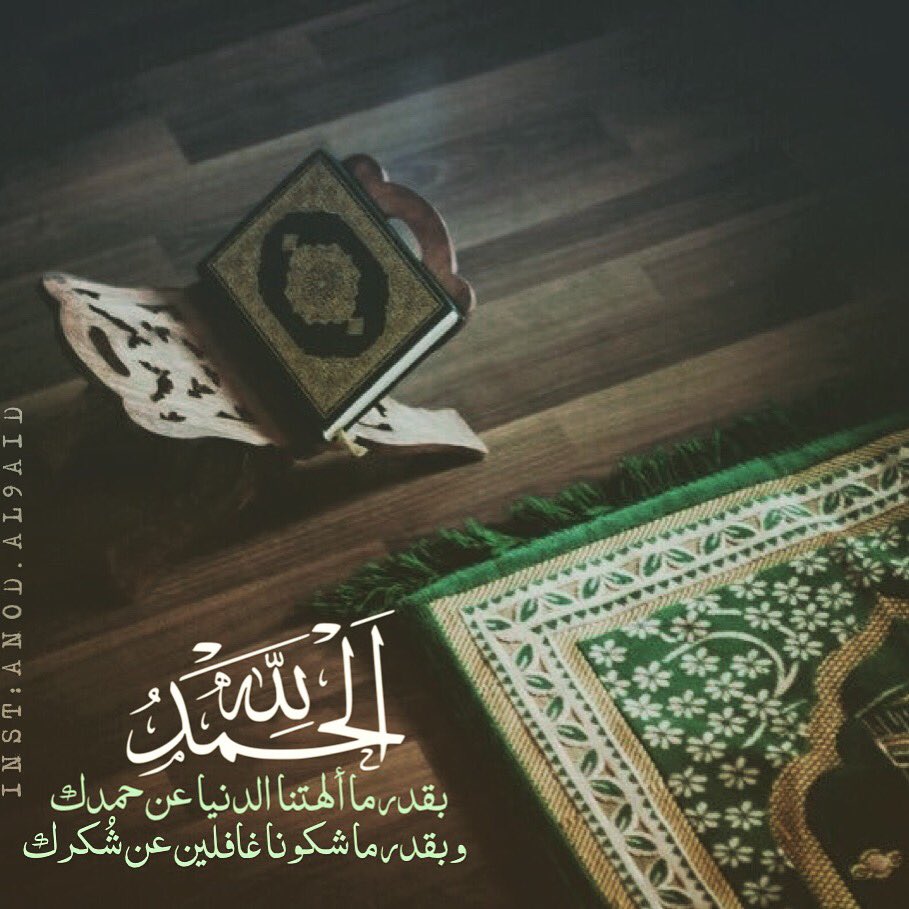 الحَمْدُ لِلّه
بقدر ما ألهتنا الدنيا عن حمدك
وبقدر ما شكونا غافلين عن شُكرك
INST:ANOD.AL9AID